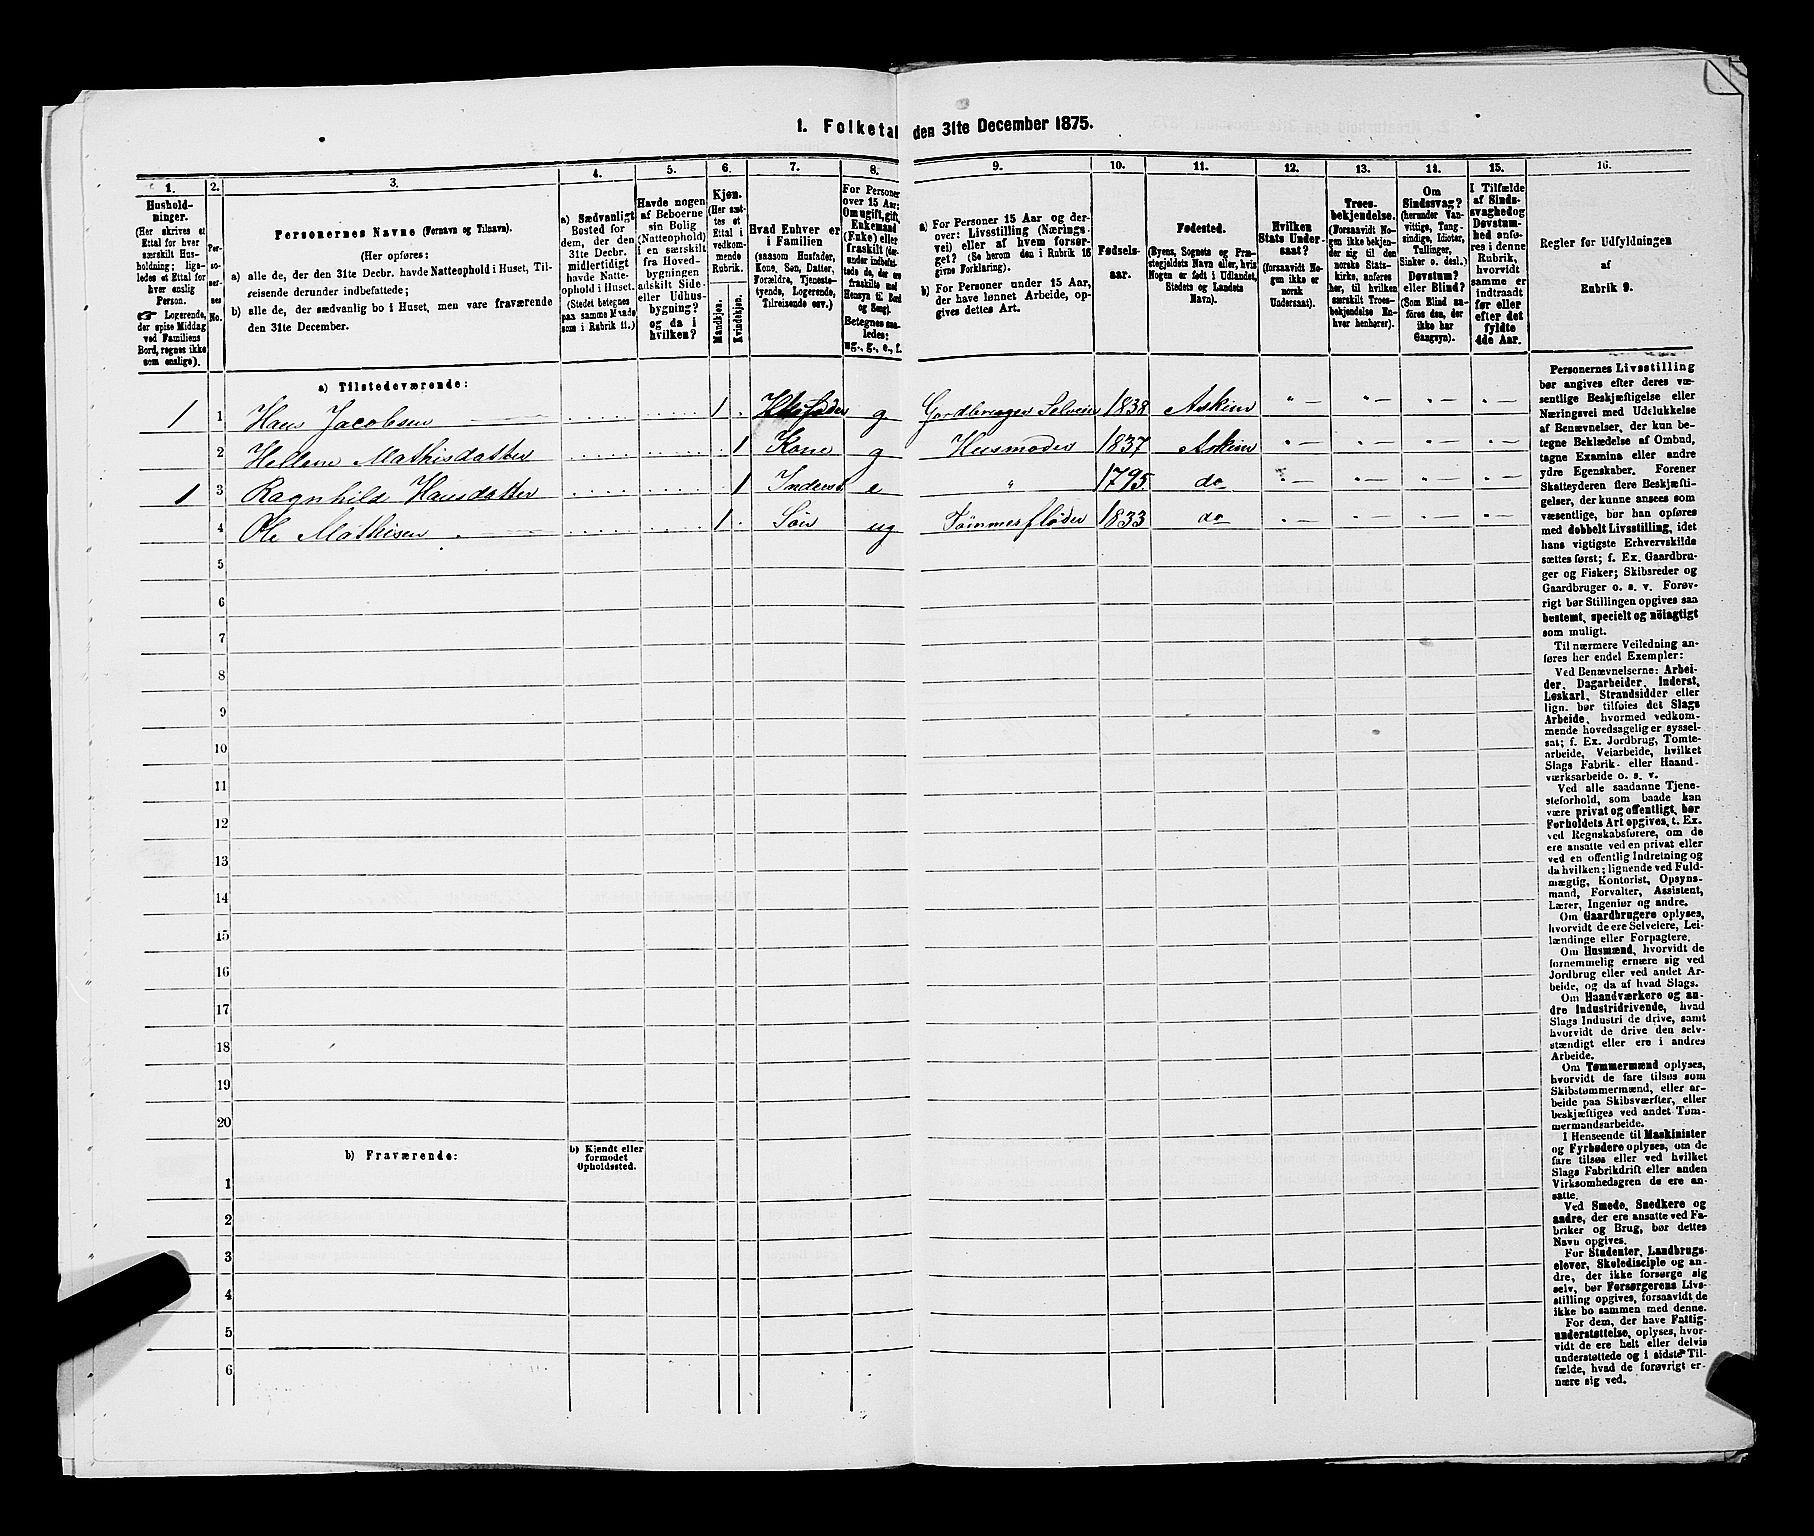 1. Folketal den 31te December 1875.
1.
Hushold-
ninger.
(Her skrives et
Ettal for hver
særskilt Hus-
holdning; lige-
ledes et Ettal for
hver enslig
Person.
☞ Logerende,
der spise Middag
ved Familiens
Bord, regnes ikke
som enslige).
2.
Per-
so-
ner-
nes
No.
3.
Personernes Navne (Fornavn og Tilnavn).
(Her opføres:
a) alle de, der den 31te Decbr. havde Natteophold i Huset, Til-
reisende derunder indbefattede;
b) alle de, der sædvanlig bo i Huset, men vare fraværende
den 31te December.
4.
a) Sædvanligt
Bosted for
dem, der den
31te Decbr.
midlertidigt
havde Natte-
ophold i Huset.
(Stedet betegnes
paa samme Maade
som i Rubrik 11.)
5.
Havde nogen
af Beboerne
sin Bolig
(Natteophold)
i en særskilt
fra Hoved-
bygningen
adskilt Side-
eller Udhus-
bygning?
og da i
hvilken?
6.
Kjøn.
(Her sæt-
tes et
Ettal i
vedkom-
mende
Rubrik.
Mandkjøn.
Kvindekjøn.
7.
Hvad Enhver er
i Familien
(saasom Husfader,
Kone, Søn, Datter,
Forældre, Tjeneste-
tyende, Logerende,
Tilreisende osv.)
8.
For Personer
over 15 Aar:
Om ugift, gift,
Enkemand
(Enke) eller
fraskilt (der-
under indbefat-
tede de, der ere
fraskilte med
Hensyn til Bord
og Seng).
Betegnes saa-
ledes:
ug., g., e., f.
9.
a) For Personer 15 Aar og der-
over: Livsstilling (Nærings-
vei) eller af hvem forsør-
get? (Se herom den i Rubrik 16
givne Forklaring).
b) For Personer under 15 Aar,
der have lønnet Arbeide, op-
gives dettes Art.
10.
Fødsels-
aar.
11.
Fødested.
(Byens, Sognets og Præ-
stegjeldets Navn eller, hvis
Nogen er født i Udlandet,
Stedets og Landets
Navn).
12.
Hvilken
Stats Under-
saat?
(forsaavidt No-
gen ikke er
norsk
Undersaat).
13.
Troes-
bekjendelse.
(Forsaavidt No-
gen ikke bekjen-
der sig til den
norske Stats-
kirke, anføres
her, til hvilken
særskilt Troes-
bekjendelse En-
hver henhører).
14.
Om
Sindssvag?
(herunder Van-
vittige, Tung-
sindige, Idioter,
Tullinger,
Sinker o. desl.)
Døvstum?
eller Blind?
(Som Blind an-
føres den, der
ikke har
Gangsyn).
15.
I Tilfælde
af Sinds-
svaghed og
Døvstum-
hed anfø-
res i denne
Rubrik,
hvorvidt
samme er
indtraadt
før eller
efter det
fyldte
4de Aar.
16.
Regler for Udfyldningen
af
Rubrik 9.
a) Tilstedeværende:
1 1 Hans Jacobsen 1 Husfader g Gardbruger Selveier 1838 Askim " — " — " — " —
2 Hellene Mathisdatter 1 Kone g Husmoder 1837 Askim " — " — " — " —
1 3 Ragnhild Hansdatter 1 Inderst e " 1795 do " — " — " — " —
4 Ole Mathisen 1 Søn ug Tømmerfløder 1833 do " — " — " — " —
5
6
7
8
9
10
11
12
13
14
15
16
17
18
19
20
b) Fraværende:
b) Kjendt eller
formodet
Opholdssted.
1
2
3
4
5
6
Personernes Livsstilling
bør angives efter deres væ-
sentlige Beskjæftigelse eller
Næringsvei med Udelukkelse
af Benævnelser, der kun be-
tegne Beklædelse af Ombud,
tagne Examina eller andre
ydre Egenskaber. Forener
Skatteyderen flere Beskjæfti-
gelser, der kunne ansees som
væsentlige, bør han opføres
med dobbelt Livsstilling, idet
hans vigtigste Erhvervskilde
sættes først; f. Ex. Gaardbru-
ger og Fisker; Skibsreder og
Gaardbruger o. s. v. Forøv-
rigt bør Stillingen opgives saa
bestemt, specielt og nöiagtigt
som muligt.
Til nærmere Veiledning an-
føres her endel Exempler:
Ved Benævnelserne: Arbei-
der, Dagarbeider, Inderst,
Løskarl, Strandsidder eller
lign. bør tilføies det Slags
Arbeide, hvormed vedkom-
mende hovedsagelig er syssel-
sat; f. Ex. Jordbrug, Tomte-
arbeide, Veiarbeide, hvilket
Slags Fabrik- eller Haand-
værksarbeide o. s. v.
Ved alle saadanne Tjene-
steforhold, som baade kan
være privat og offentligt, bør
Forholdets Art opgives, t. Ex.
ved Regnskabsførere, om de
ere ansatte ved en privat eller
ved en offentlig Indretning og
da hvilken; lignende ved Fuld-
mægtig, Kontorist, Opsyns-
mand, Forvalter, Assistent,
Lærer, Ingeniør og andre.
Om Gaardbrugere oplyses,
hvorvidt de ere Selveiere, Lei-
lændinge eller Forpagtere.
Om Husmænd, hvorvidt de
fornemmelig ernære sig ved
Jordbrug eller ved andet Ar-
beide, og da af hvad Slags.
Om Haandværkere og an-
dre Industridrivende, hvad
Slags Industri de drive, samt
hvorvidt de drive den selv-
stændigt eller ere i andres
Arbeide.
Om Tømmermænd oplyses,
hvorvidt de fare tilsøs som
Skibstømmermænd, eller ar-
beide paa Skibsværfter, eller
beskjæftiges ved andet Tøm-
mermandsarbeide.
I Henseende til Maskinister
og Fyrbødere oplyses, om de
fare tilsøs eller ved hvilket
Slags Fabrikdrift eller anden
Virksomhedsgren de ere an-
satte.
Ved Smede, Snedkere og
andre, der ere ansatte ved Fa-
briker og Brug, bør dettes
Navn opgives.
For Studenter, Landbrugs-
elever, Skoledisciple og an-
dre, der ikke forsørge sig
selv, bør Forsørgerens Livs-
stilling opgives, forsaavidt de
ikke bo sammen med denne.
For dem, der have Fattig-
understøttelse, oplyses, hvor-
vidt de ere helt eller delvis
understøttede og i sidste Til-
fælde, hvad de forøvrigt er-
nære sig ved.